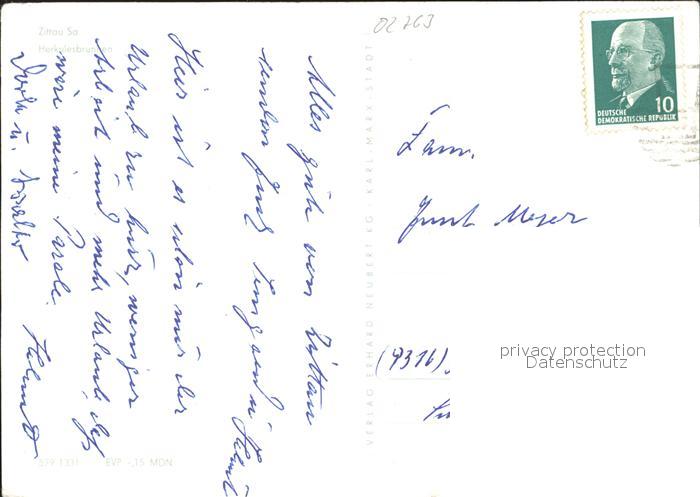 Zittau Sa
Herkulesbrunnen
02763
DEUTSCHE
DEMOKRATISCHE REPUBLIK
10
Alles gute von Zittau
senden Euch u. Helmut
Hier ist es schön nur der
Urlaub zu kurz, weniger
Arbeit und mehr Urlaub, das
wäre meine Parole.
u. Walter Helmut
Fam.
Meyer
(9316)
VERLAG ERHARD NEUBERT KG. KARL-MARX-STADT
privacy protection
Datenschutz
679 1331 EVP -,15 MDN